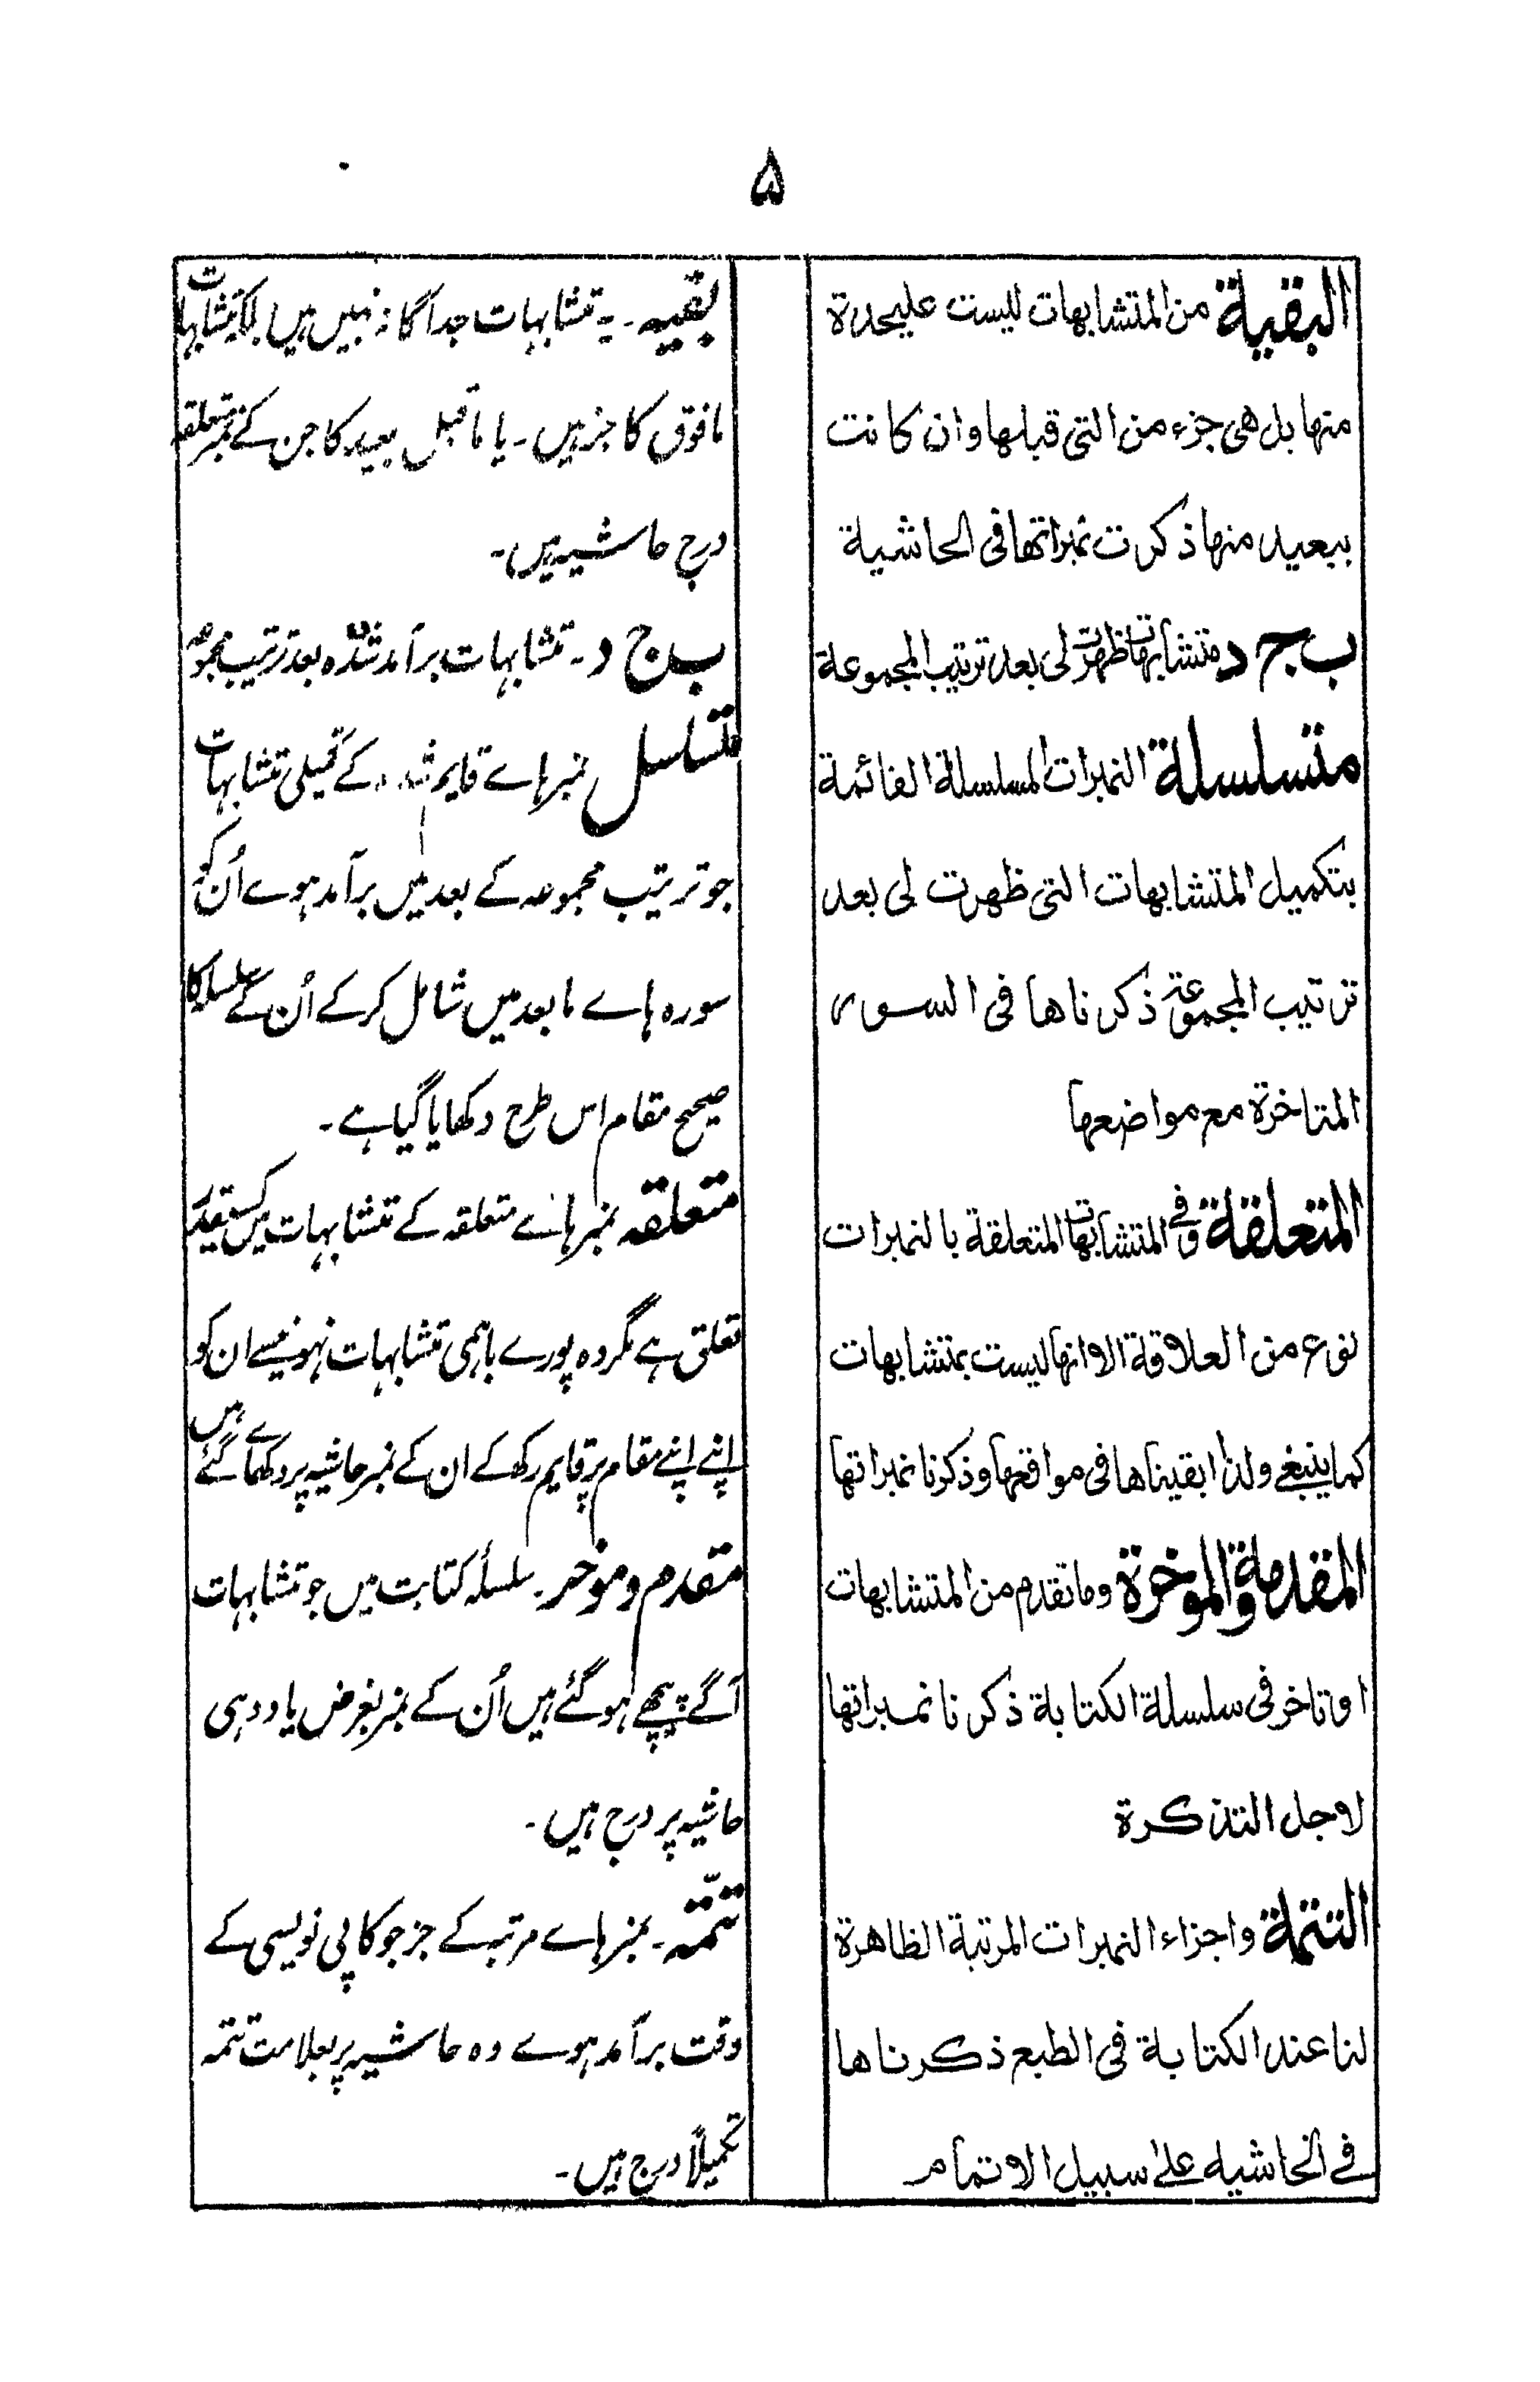 ۵
البقية من المتشابهات ليست عليحدة
منها بل هى جزء من التى قبلها وان كانت
ببعيد منها ذكرت نمبراتها فى الحاشية
ب ج د متشابهات ظهرت لى بعد ترتيب المجموعة
متسلسلة النمبرات المسلسلة القائمة
بتكميل المتشابهات التى ظهرت لى بعد
ترتيب المجموعة ذكرناها فى السور
المتاخرة مع مواضعها
المتعلقة وفى المتشابهات المتعلقة بالنمبرات
نوع من العلاقة الا انها ليست بمتشابهات
كما ينبغى ولذا ابقيناها فى مواقعها وذكرنا نمبراتها
المقدمة والموخرة وما تقدم من المتشابهات
او تاخر فى سلسلة الكتابة ذكرنا نمبراتها
لاجل التذكرة
التتمة واجزاء النمبرات المرتبة الظاهرة
لنا عند الكتابة فى الطبع ذكرناها
فى الحاشيه على سبيل الاتمام
بقیہ ۔ یہ تشابہات جداگانہ نہیں ہیں بلکہ تشابہات
مافوق کا جز ہیں ۔ یا ماقبل بعید کا جن کے نمبر متعلقہ
درج حاشیہ ہیں ۔
ب ج د ۔ تشابہات برآمد شدہ بعد ترتیب مجموعہ
متسلسل نمبر ہاے قایم شدہ کے تکمیلی تشابہات
جو ترتیب مجموعہ کے بعد میں برآمد ہوے اُن کو
سورہ ہاے مابعد میں شامل کرکے اُن کے سلسلہ کا
صحیح مقام اس طرح دکھایا گیا ہے ۔
متعلقہ نمبر ہاے متعلقہ کے تشابہات میں کسیقدر
تعلق ہے مگر وہ پورے باہمی تشابہات نہونیسے ان کو
اپنے اپنے مقام پر قایم رکھ کے ان کے نمبر حاشیہ پر دکھاے گئے ہیں
مقدم و موخر ۔ سلسلۂ کتابت میں جو تشابہات
آگے پیچھے ہوگئے ہیں اُن کے نمبر بغرض یاددہی
حاشیہ پر درج ہیں ۔
تتمّہ ۔ نمبر ہاے مرتبہ کے جز جو کاپی نویسی کے
وقت برآمد ہوے وہ حاشیہ پر بعلامت تتمہ
تکمیلاً درج ہیں ۔